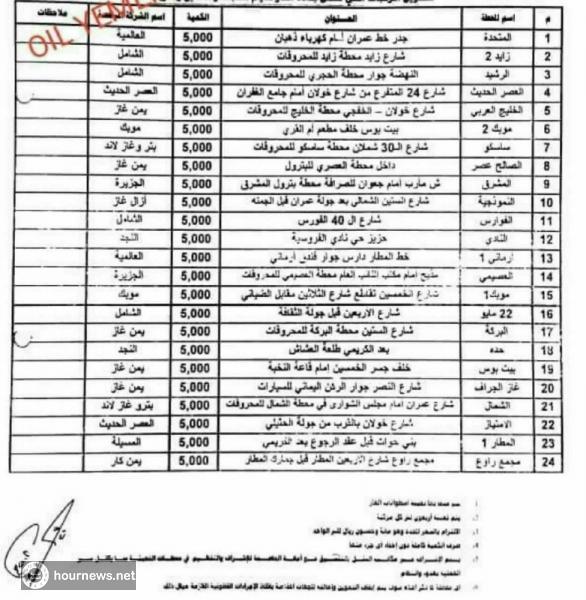 OIL YEME
م اسم المحطة العنوان الكمية اسم الشركة ملاحظات
1 المتحدة جدر خط عمران أمام كهرباء ذهبان 5,000 العالمية
2 زايد 2 شارع زايد محطة زايد للمحروقات 5,000 الشامل
3 الرشيد النهضة جوار محطة الحجري للمحروقات 5,000 الشامل
4 العصر الحديث شارع 24 المتفرع من شارع خولان أمام جامع الغفران 5,000 العصر الحديث
5 الخليج العربي شارع خولان – الخفجي محطة الخليج للمحروقات 5,000 يمن غاز
6 موبك 2 بيت بوس خلف مطعم أم القرى 5,000 موبك
7 ساسكو شارع الـ30 شملان محطة ساسكو للمحروقات 5,000 بترو غاز لاند
8 الصالح عصر داخل محطة العصري للبترول 5,000 يمن غاز
9 المشرق ش مأرب أمام جعوان للصرافة محطة بترول المشرق 5,000 الجزيرة
10 النموذجية شارع الستين الشمالي بعد جولة عمران قبل الجمنه 5,000 أزال غاز
11 الفوارس شارع ال 40 الفورس 5,000 الشامل
12 النادي حزيز حي نادي الفروسية 5,000 النجد
13 أرماني 1 خط المطار دارس جوار فندق أرماني 5,000 العالمية
14 العصيمي مذبح أمام مكتب النائب العام محطة العصيمي للمحروقات 5,000 الجزيرة
15 موبك1 شارع الخمسين تقاطع شارع الثلاثين مقابل الضياني 5,000 موبك
16 22 مايو شارع الاربعين قبل جولة الثقافة 5,000 الشامل
17 البركة شارع الستين محطة البركة للمحروقات 5,000 يمن غاز
18 حده بعد الكريمي طلعة العشاش 5,000 النجد
19 بيت بوس خلف جسر الخمسين امام قاعة النخبة 5,000 يمن غاز
20 غاز الجراف شارع النصر جوار الركن اليماني للسيارات 5,000 يمن غاز
21 الشمال شارع عمران امام مجلس الشورى في محطة الشمال للمحروقات 5,000 بترو غاز لاند
22 الامتياز شارع خولان بالقرب من جولة الحثيلي 5,000 العصر الحديث
23 المطار 1 بني حوات قبل عقد الرجوع بعد الكريمي 5,000 المسيلة
24 مجمع راوع مجمع راوع شارع الاربعين المطار قبل جمارك المطار 5,000 يمن كار
الالتزام بالسعر المحدد وهو مائة وخمسون ريال للتر الواحد
صرف الكمية كاملة دون إخفاء أي جزء منها
hournews.net